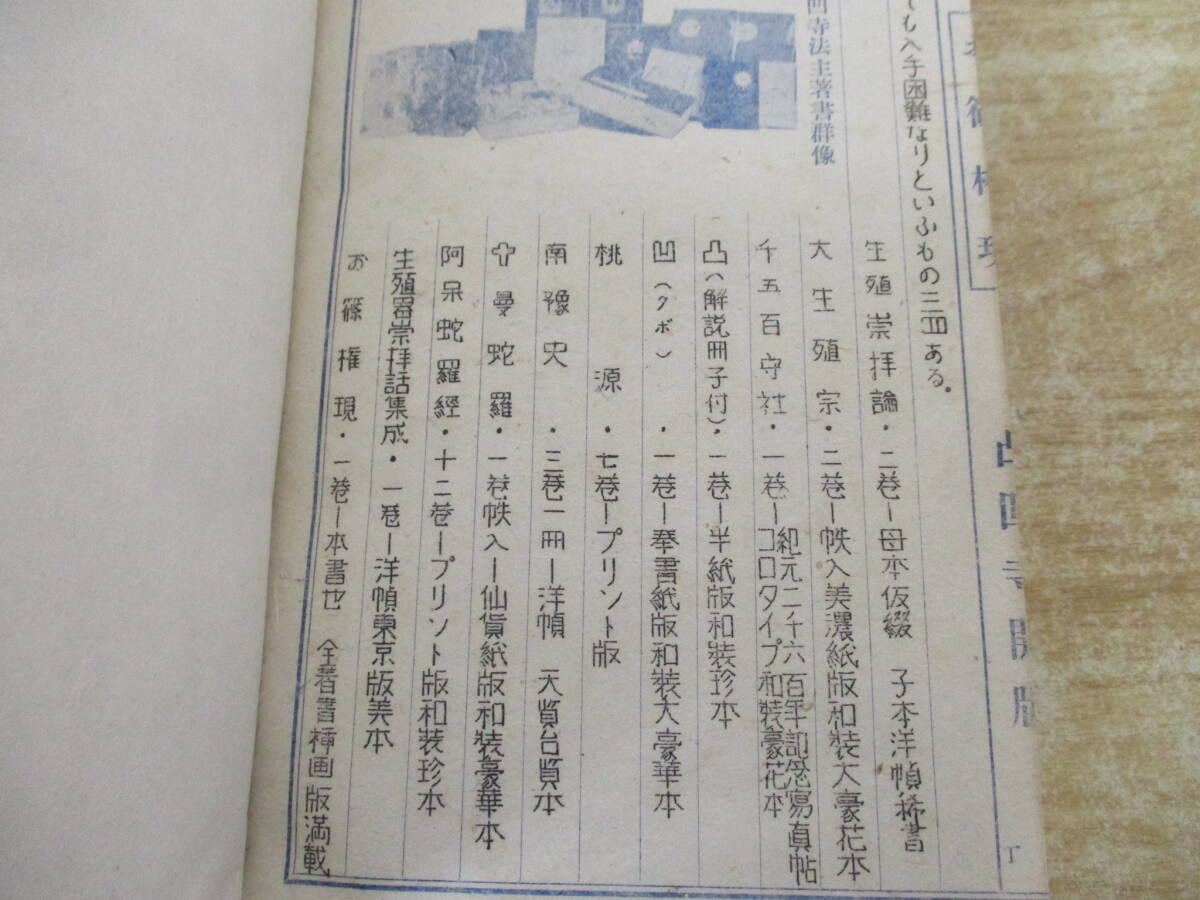 お篠権現
凸凹寺開版
ても入手困難なりといふもの三四ある。
凹寺法主著書群像
生殖崇拝論・二巻―母本仮綴 子本洋幀稀書
大生殖宗・二巻―帙入美濃紙版和装大豪花本
千五百守社・一巻―紀元二千六百年記念寫真帖
コロタイプ和装豪花本
凸(解説冊子付)・一巻―半紙版和装珍本
凹(クボ)・一巻―奉書紙版和装大豪華本
桃源・七巻―プリント版
南豫史・三巻一冊―洋幀 天覧台覧本
曼蛇羅・一巻帙入―仙貨紙版和装豪華本
阿呆蛇羅経・十二巻―プリント版和装珍本
生殖器崇拝話集成・一巻―洋幀東京版美本
お篠権現・一巻―本書也 全著書挿画版満載